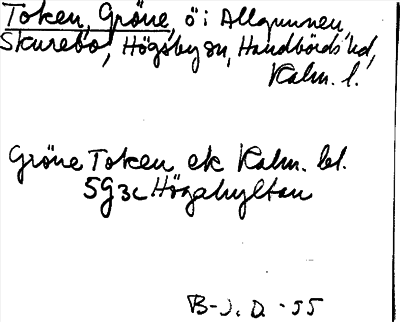 Token, Gröne, ö i Allgunnen,
Skurebo, Högsby sn, Handbörds hd,
Kalm. l.
Gröne Token ek Kalm. bl.
5g3c Högahultan
B-J. D. -55